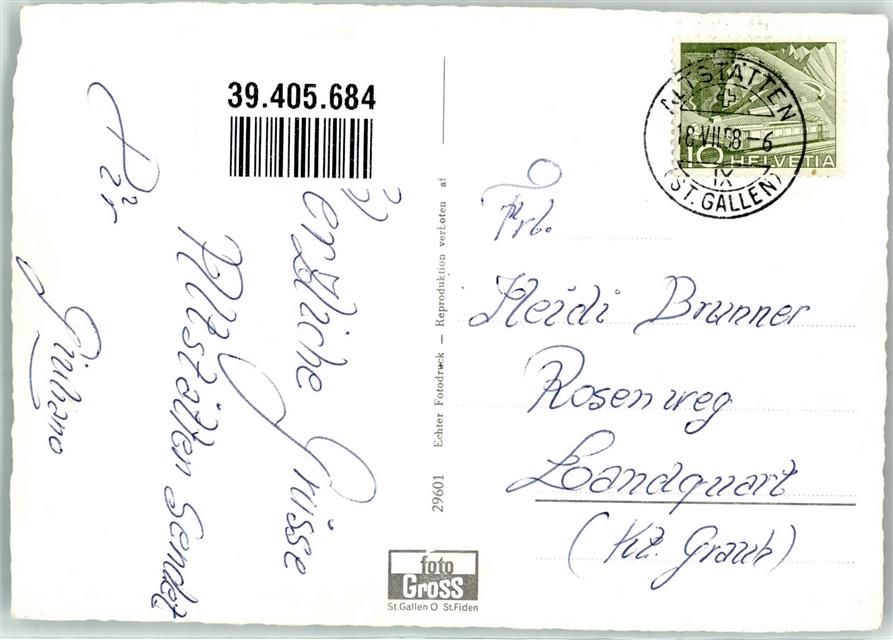 39.405.684
Herzliche Grüsse
Altstätten Sendet
Giuliano
29601 Echter Fotodruck — Reproduktion verboten af
foto
Gross
St.Gallen O St.Fiden
ALTSTÄTTEN
18.VII.58-6
IX
(ST. GALLEN)
10 HELVETIA
Frl.
Heidi Brunner
Rosenweg
Landquart
(Kt. Graub)